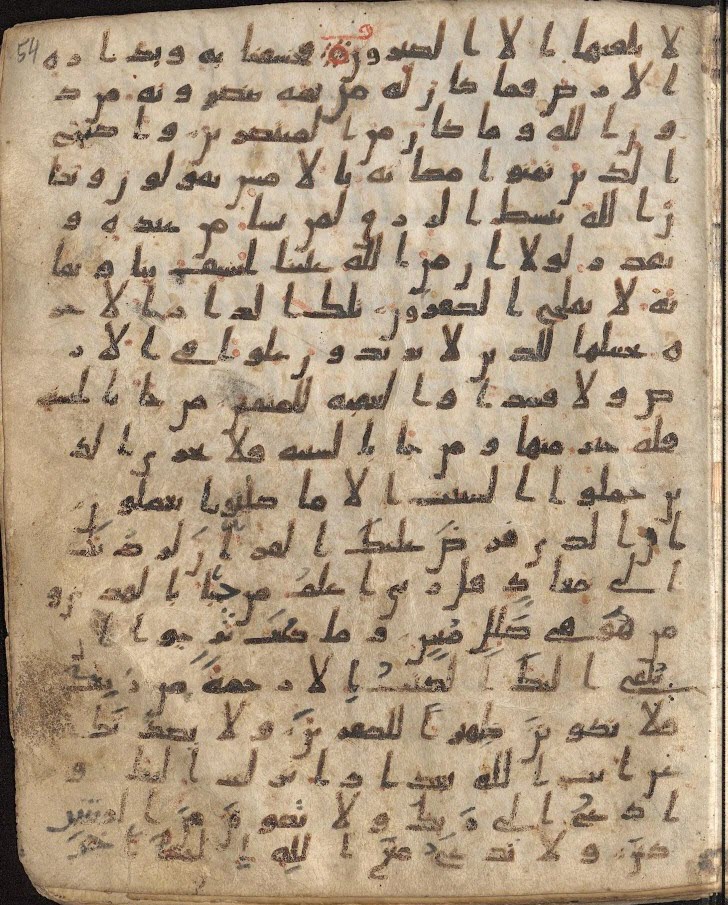 54
لا يلقيها الا الصبرون فخسفنا به وبداره
الارض فما كان له من فئة ينصرونه من د
ون الله وما كان من المنتصرين واصبح
الذين تمنوا مكانه بالامس يقولون ويكا
ن الله يبسط الرزق لمن يشا من عباده و
يقدر لولا ان من الله علينا لخسف بنا ويكا
نه لا يفلح الكفرون تلك الدار الاخر
ه نجعلها للذين لا يريدون علوا في الار
ض ولا فسادا والعقبه للمتقين من جا بالحسنه
فله خير منها ومن جا بالسيئه فلا يجزى الذ
ين عملوا السيئت الا ما كانوا يعملون
ان الذي فرض عليك القران لرادك
الى معاد قل ربي اعلم من جا بالهدى و
من هو في ضلل مبين وما كنت ترجوا ان
يلقى اليك الكتب الا رحمة من ربك
فلا تكونن ظهيرا للكفرين ولا يصدنك
عن ايت الله بعد اذ انزلت اليك و
ادع الى ربك ولا تكونن من المشر
كين ولا تدع مع الله الها اخر